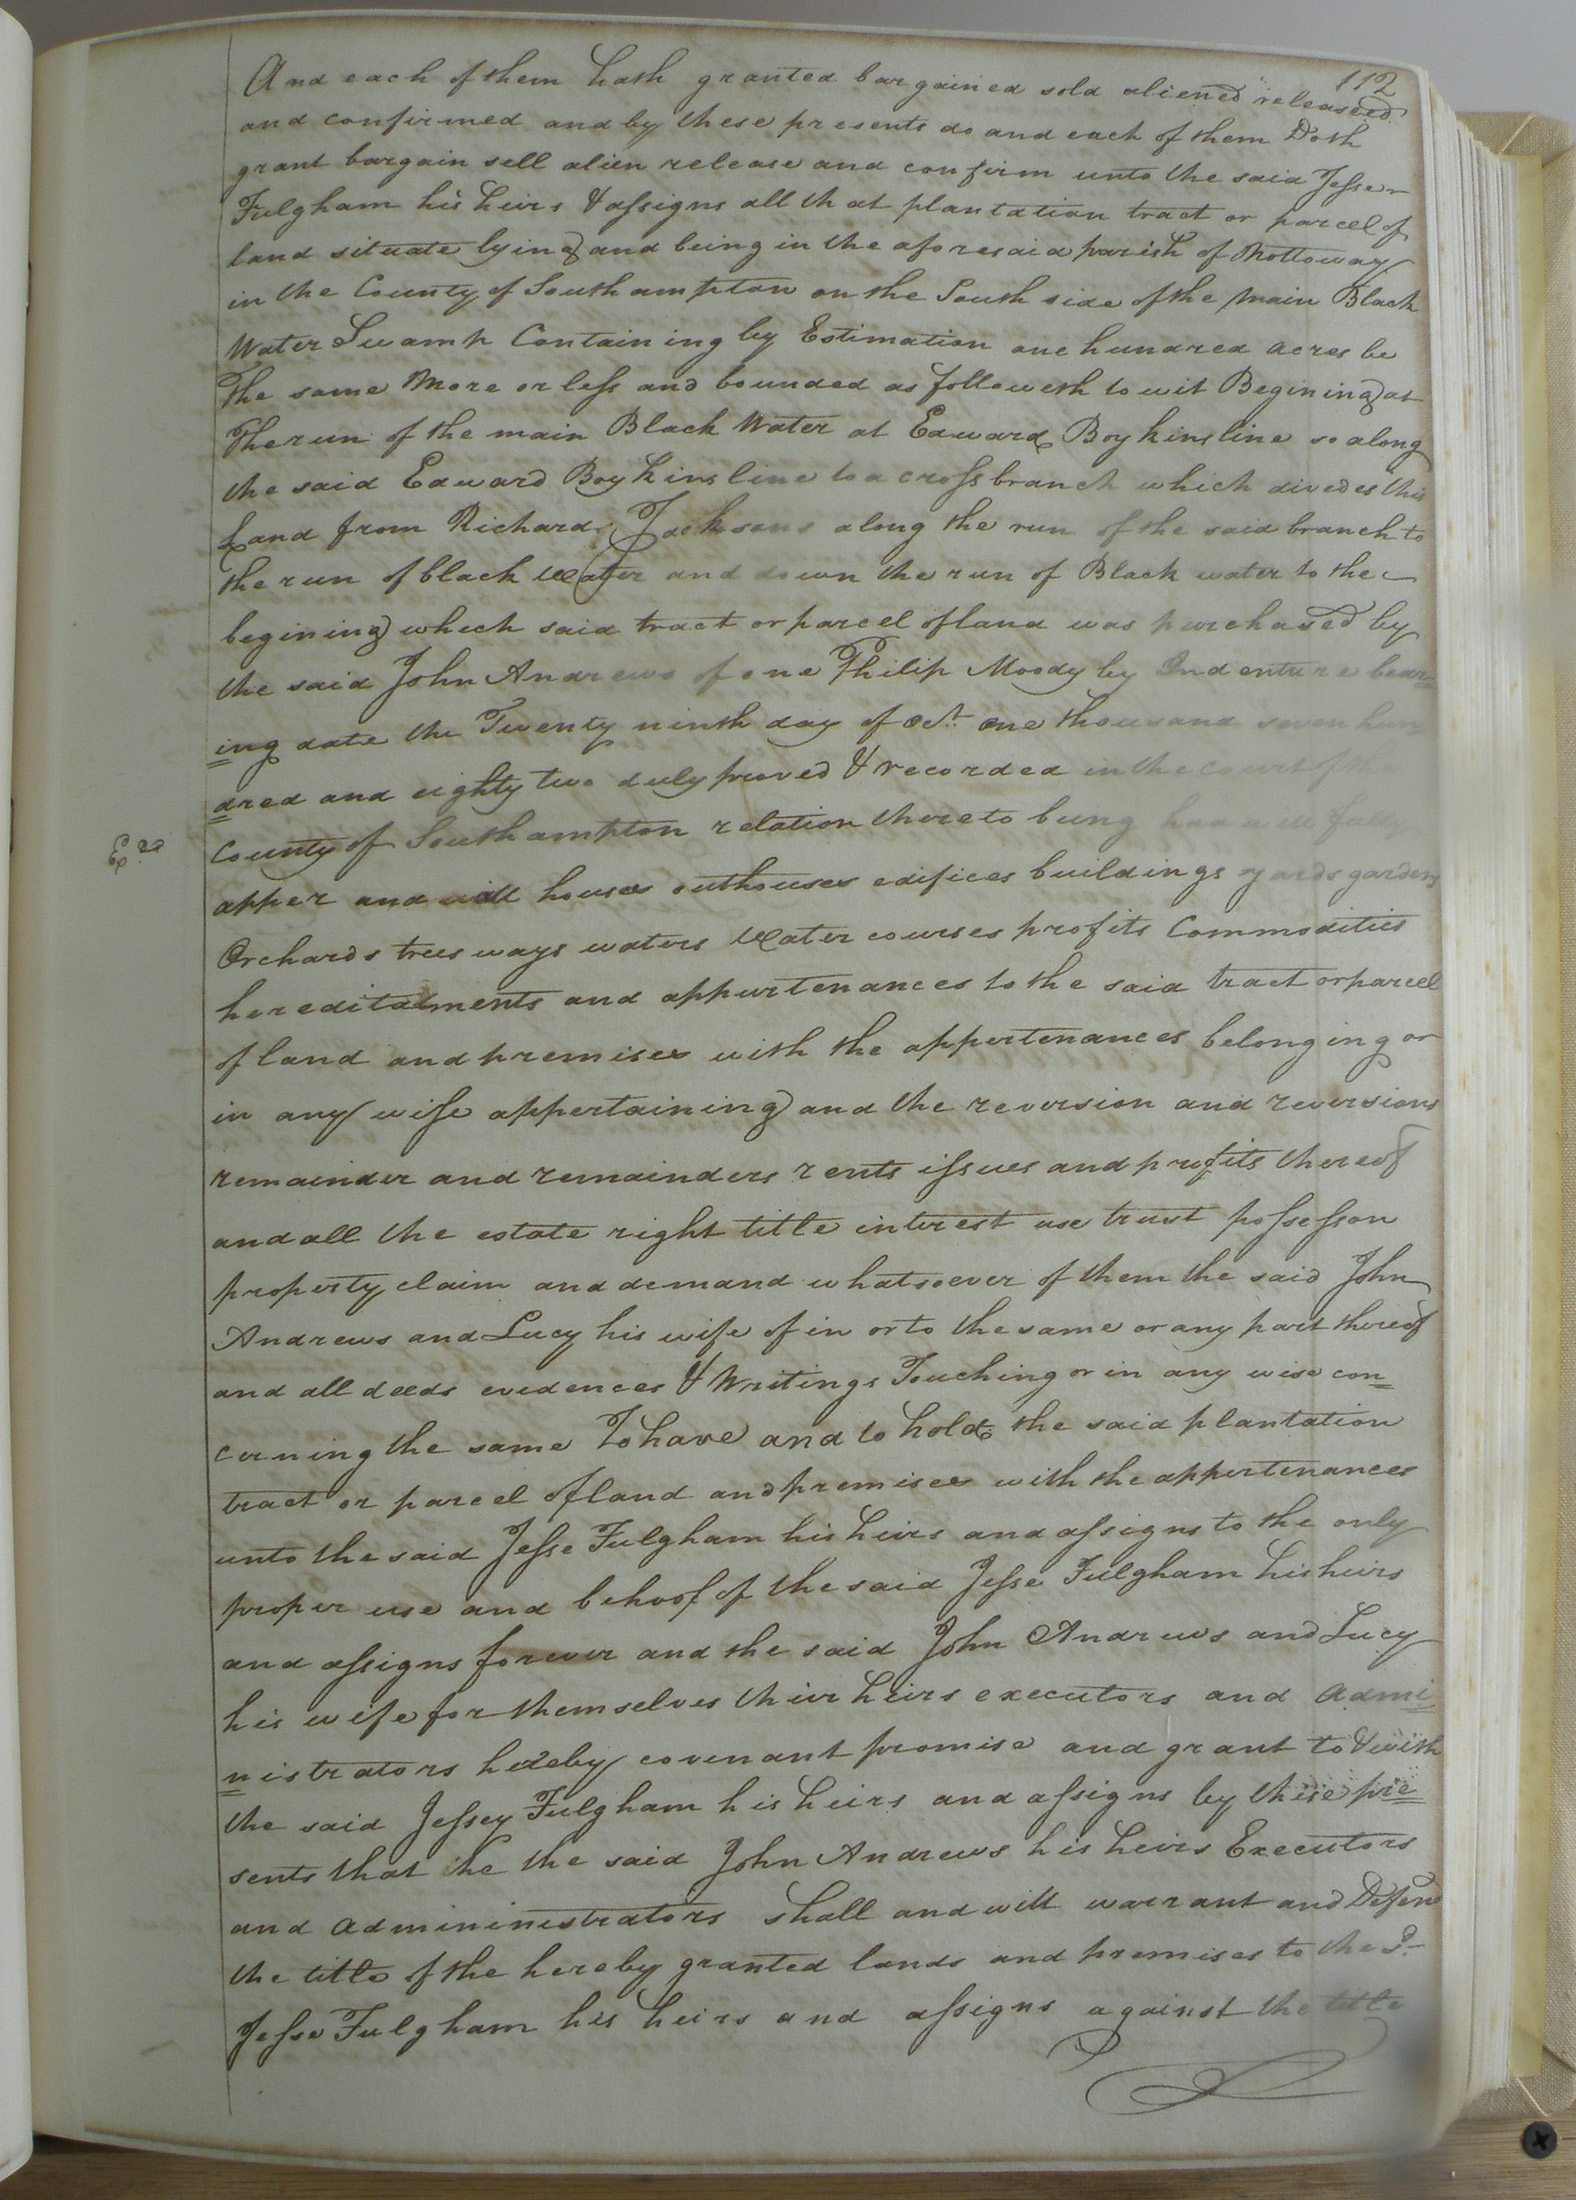 112
And each of them hath granted bargained sold aliened releaseed
and confirmed and by these presents do and each of them Doth
grant bargain sell alien release and confirm unto the said Jesse
Fulgham his heirs & assigns all that plantation tract or parcel of
land situate lying and being in the aforesaid parish of Nottoway
in the County of Southampton on the South side of the Main Black
Water Swamp Containing by Estimation one hundred acres be
the same More or less and bounded as followeth to wit Begining at
The run of the main Black Water at Edward Boykins line so along
the said Edward Boykins line to a cross branch which divedes this
Land from Richard Jacksons along the run of the said branch to
the run of black Water and down the run of Black water to the
begining which said tract or parcel of land was purchased by
the said John Andrews of one Philip Moody by Indenture bear=
ing date the Twenty ninth day of Oct. one thousand seven hun
dred and eighty two duly proved & recorded in the court of the
County of Southampton relation thereto being had will fully
Exd.
apper and all houses outhouses edifices buildings yards gardens
Orchards trees ways waters Water courses profits Commodities
hereditatments and appurtenances to the said tract or parcel
of land and premises with the appertenances belonging or
in any wise appertaining and the reversion and reversions
remainder and remainders rents issues and profits thereof
and all the estate right title interest use trust possesson
property claim and demand whatsoever of them the said John
Andrews and Lucy his wife of in or to the same or any part thereof
and all deeds evedences & Writings Touching or in any wise con=
cerning the same To have and to hold the said plantation
tract or parcel of land and premises with the appertenances
unto the said Jesse Fulgham his heirs and assigns to the only
proper use and behoof of the said Jesse Fulgham his heirs
and assigns forever and the said John Andrews and Lucy
his wife for themselves their heirs executors and admi=
nistrators hereby covenant promise and grant to & with
the said Jessey Fulgham his heirs and assigns by these pre=
sents that he the said John Andrews his heirs Executors
and admininistrators shall and will warrant and Defend
the title of the hereby granted lands and premises to the Sd.
Jesse Fulgham his heirs and assigns against the title